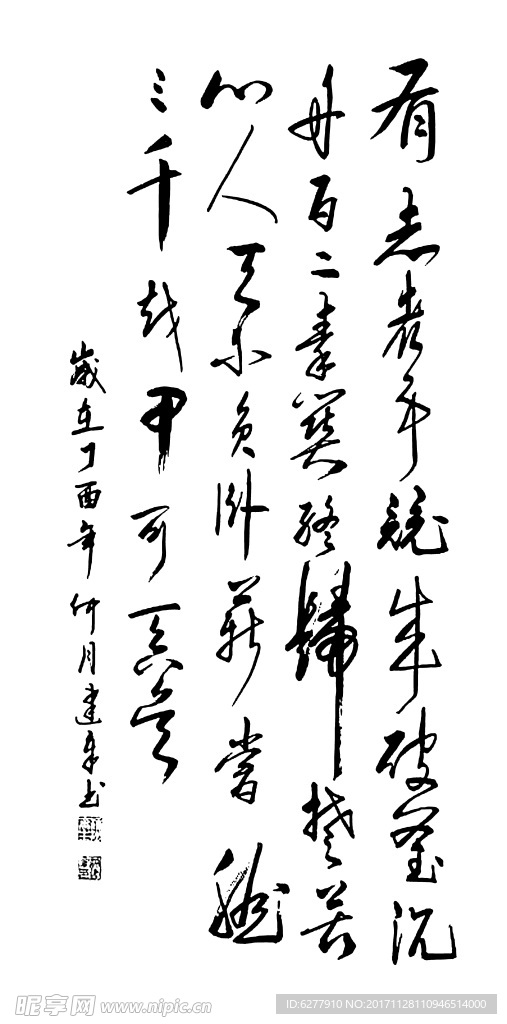 有志者事竟成破釜沉
舟百二秦關終歸楚苦
心人天不負卧薪嘗膽
三千越甲可吞吴
歲在丁酉年仲月建书
昵享网 www.nipic.cn
ID:6277910 NO:20171128110946514000